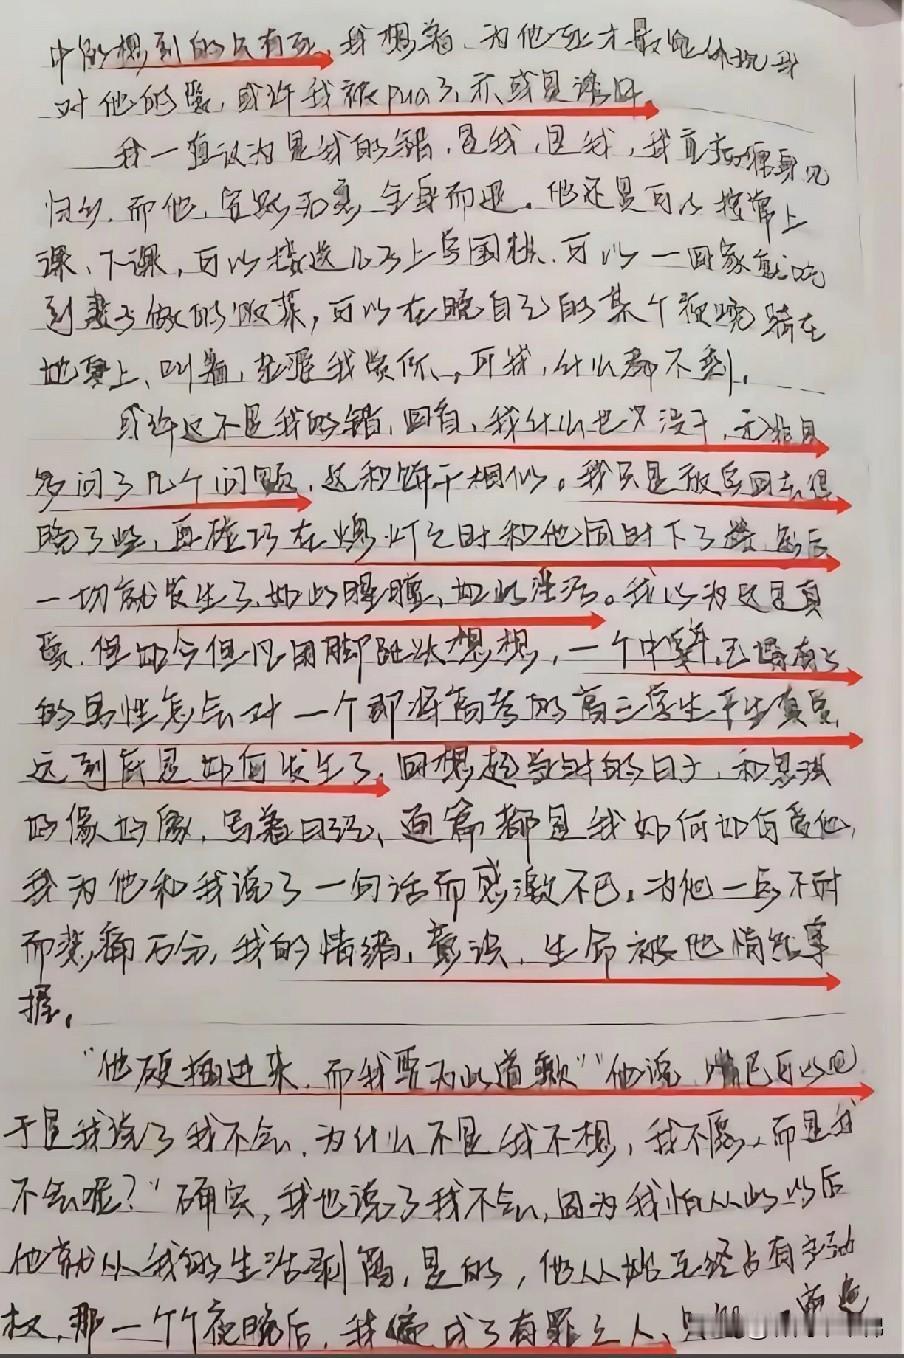 中能想到的只有死。我想着，为他死才最能体现我
对他的爱，或许我被pua了，亦或是诱奸。
我一直认为是我的错，是我，是我，我直病缠身
而他，安然无恙，全身而退。他还是可以按常上
课、下课，可以接送儿子上学围棋，可以一回家就吃
到妻子做的饭菜，可以在晚自习的某个夜晚骑在
地复上、叫着，我爱你，可我，什么都不剩。
或许这不是我的错，因为，我什么也没干，无非是
多问了几个问题，这和饼干相似。我只是被留回去得
晚了些，再碰巧在熄灯之时和他同时下了楼，然后
一切就发生了，如此，如此生活。我以为这是真
爱，但如今但凡用脚趾头想想，一个中年、已婚有子
的男性怎会对一个即将高考的高三学生产生真爱，
这到底是如何发生了。回想起当时的日子，和思琪
好像好像，写着日记，通篇都是我如何如何爱他，
我为他和我说了一句话而感激不已，为他一点不耐
而悲痛万分，我的情绪，意识，生命被他悄然掌
握。
“他硬插进来，而我要为此道歉”“他说，嘴巴可以吧
于是我说了我不会，为什么不是我不想，我不愿，而是我
不会呢？”确实，我也说了我不会，因为我怕从此以后
他就从我的生活剥离，是的，他从始至终占有主动
权，那一个个夜晚后，我便成了有罪之人，